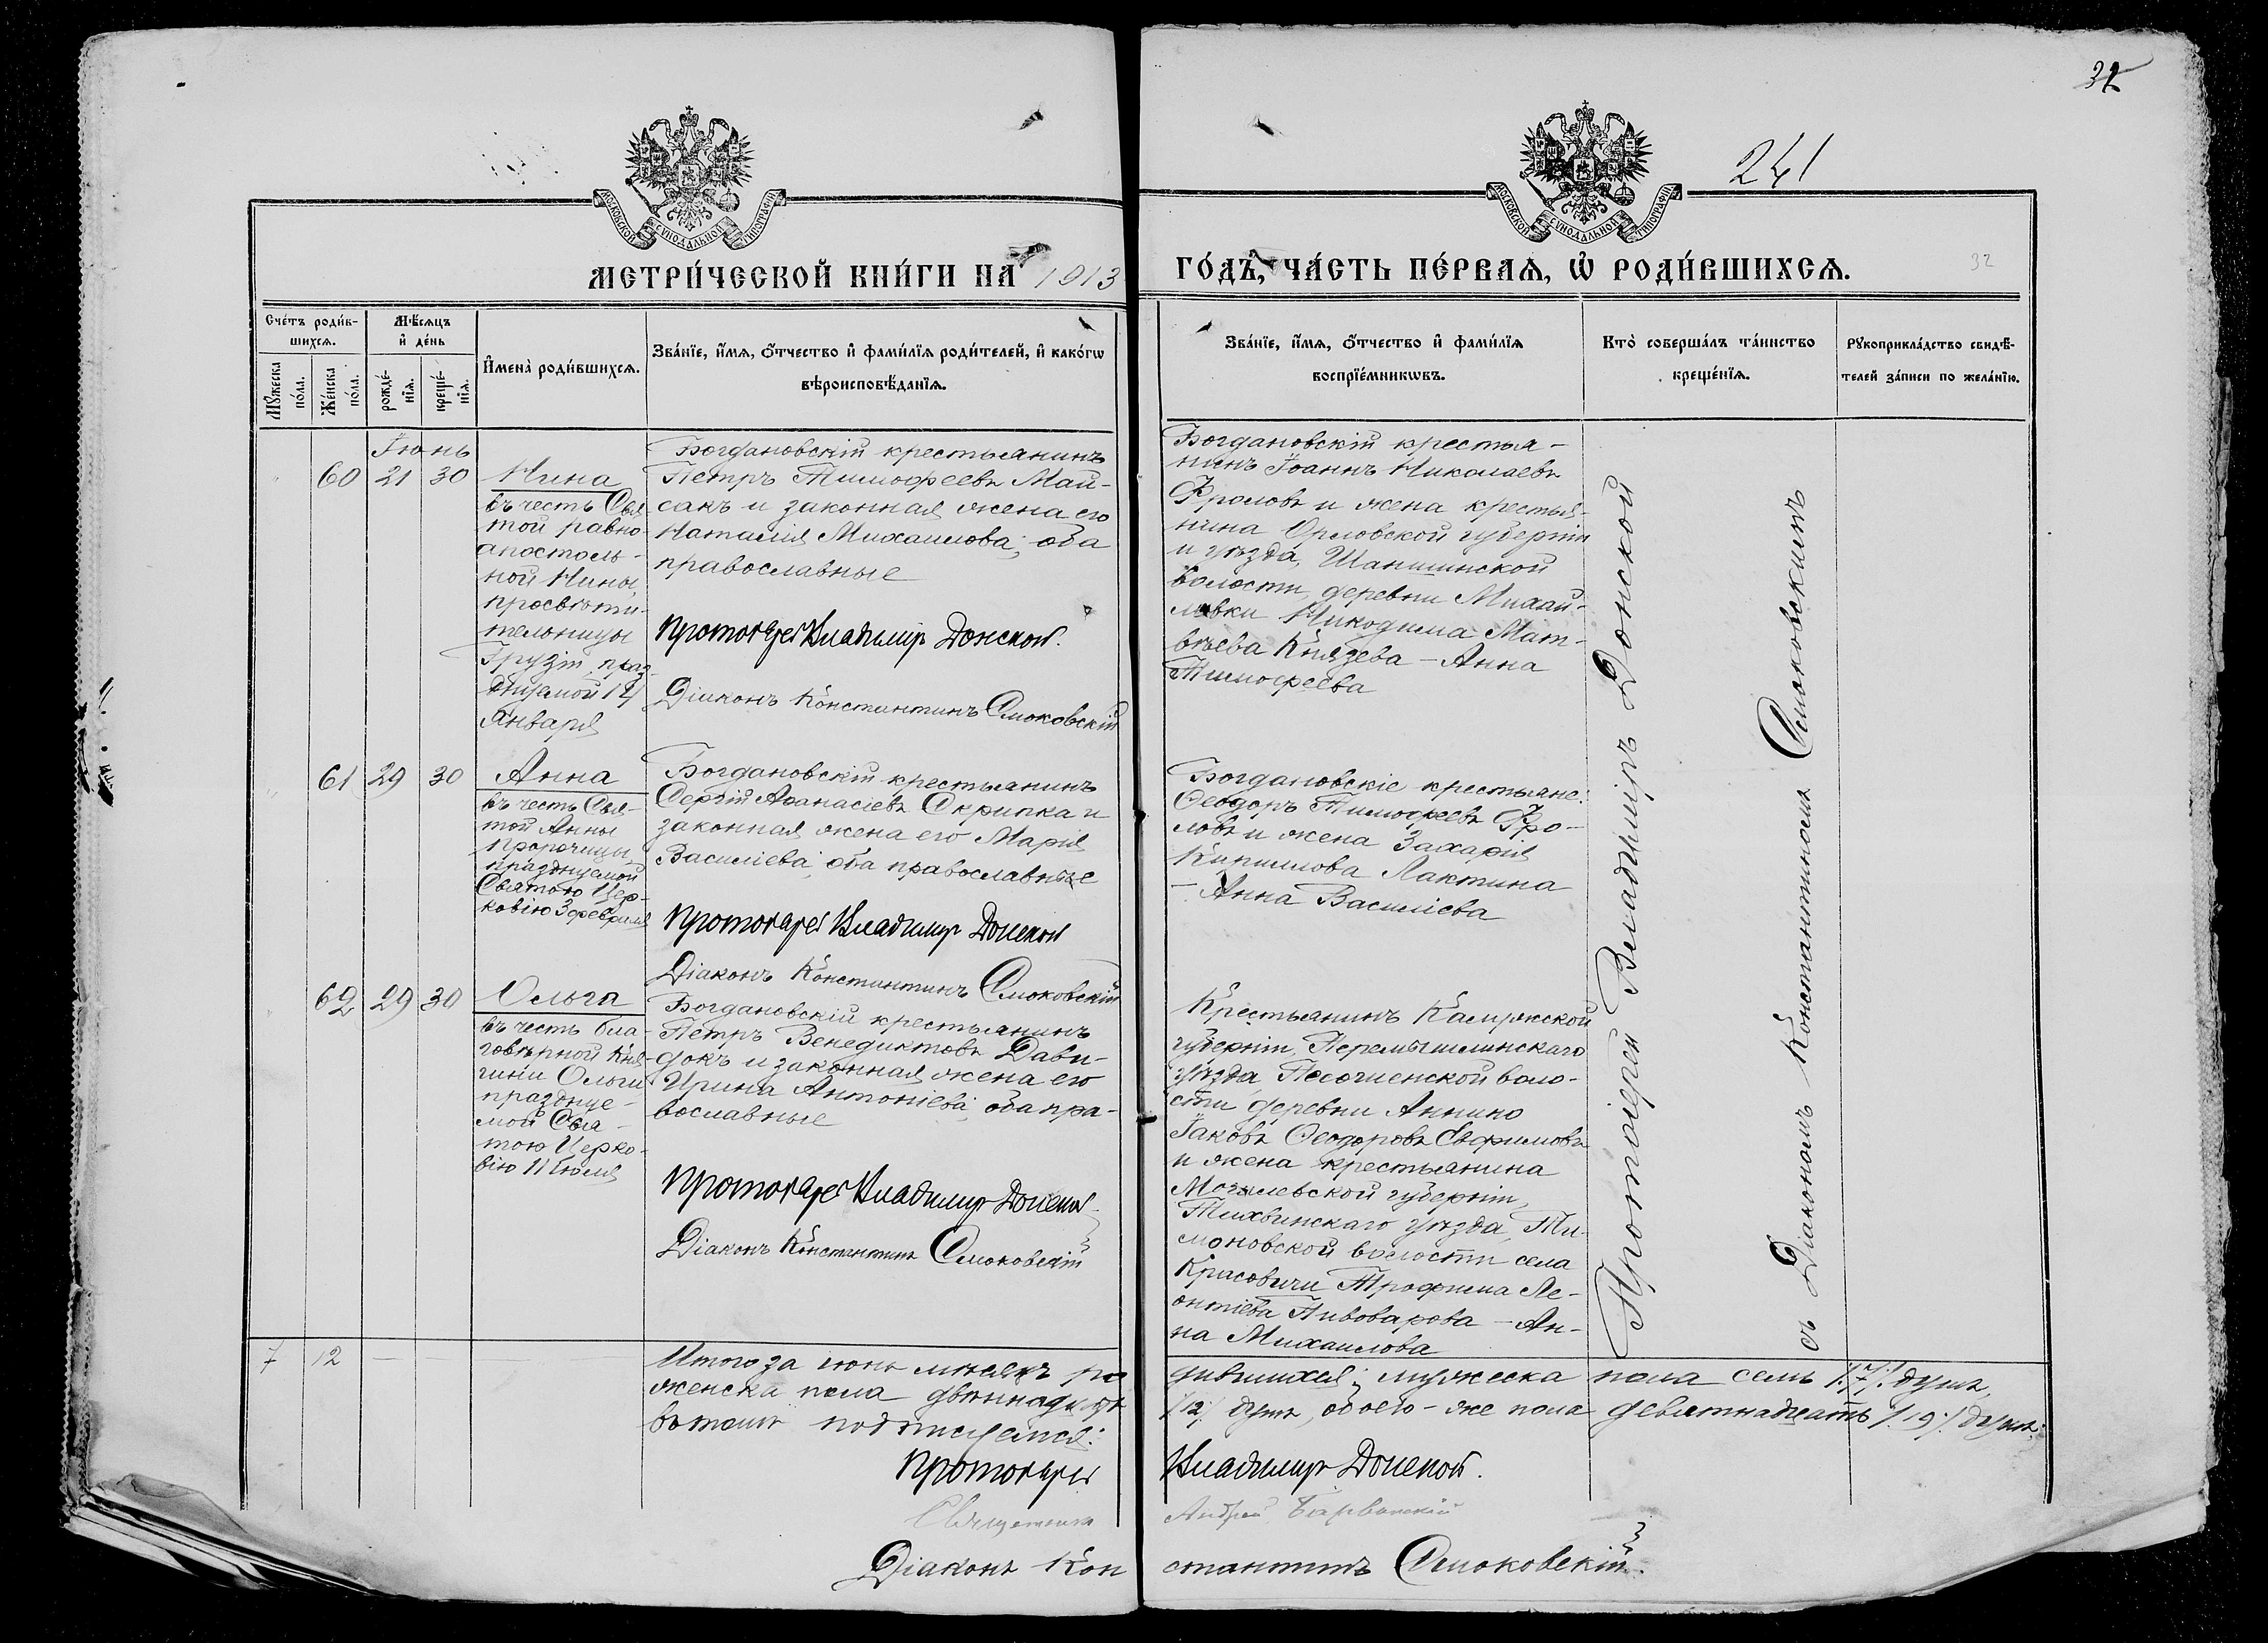 32
241
МОСКОВСКОЙ СѴНОДАЛЬНОЙ ТИПОГРАФІИ
МОСКОВСКОЙ СѴНОДАЛЬНОЙ ТИПОГРАФІИ
МЕТРИ́ЧЕСКОЙ КНИ́ГИ НА 1913
ГО́ДЪ, ЧА́СТЬ ПЕ́РВАѦ, Ѡ҆ РОДИ́ВШИХСѦ.
32
Сче́тъ роди́в-
шихсѧ.
Мѣ́сѧцъ
и҆ де́нь
Мꙋ́жеска
по́ла.
Же́нска
по́ла.
рожде́-
нїѧ.
креще́-
нїѧ.
И҆мена̀ роди́вшихсѧ.
Зва́нїе, и҆́мѧ, ѻ҆́тчество и҆ фами́лїѧ роди́телей, и҆ како́гѡ
вѣроисповѣ́данїѧ.
Зва́нїе, и҆́мѧ, ѻ҆́тчество и҆ фами́лїѧ
воспрїе́мникѡвъ.
Кто̀ соверша́лъ та́инство
креще́нїѧ.
Рꙋкоприкла́дство свидѣ́-
телей за́писи по жела́нїю.
Іюнь
60 21 30
Нина
въ честь Свя
той равно-
апостоль-
ной Нины,
просвѣти-
тельницы
Грузіи, праз-
днуемой 14
Января
Богдановскій крестьянинъ
Петръ Тимофеевъ Май-
сакъ и законная жена его
Наталія Михаилова; оба
православные
Протоіерей Владиміръ Донской.
Діаконъ Константинъ Смоковскій
Богдановскій крестья-
нинъ Іоаннъ Николаевъ
Фроловъ и жена крестья-
нина Орловской губерніи
и уѣзда,
волости, деревни Михай-
ловки Никодима Мат-
вѣева Князева - Анна
Тимофеева
61 29 30
Анна
въ честь Свя-
той Анны
пророчицы,
празднуемой
Святою Цер-
ковію 3 февраля
Богдановскій крестьянинъ
Сергій Аѳанасіевъ Скрипка и
законная жена его Марія
Василіева; оба православные
Протоіерей Владиміръ Донской
Діаконъ Константинъ Смоковскій
Богдановскіе крестьяне:
Ѳеодоръ Тимофеевъ Фро-
ловъ и жена Захарія
Кириллова Лактина
- Анна Василіева
62 29 30
Ольга
въ честь бла-
говѣрной Кня-
гини Ольги
празднуе-
мой Свя-
тою Церко-
вію 11 Іюля
Богдановскій крестьянинъ
Петръ Венедиктовъ Дави-
докъ и законная жена его
Ирина Антоніева; оба пра-
вославные
Протоіерей Владиміръ Донской
Діаконъ Константинъ Смоковскій
Крестьянинъ Калужской
губерніи, Перемышлинскаго
уѣзда, Песоченской воло-
сти деревни Аннино
Іаковъ Ѳеодоровъ Ефимовъ
и жена крестьянина
Могилевской губерніи,
уѣзда, Ти-
моновской волости села
Красовичи Трофима Ле-
онтіева Пивоварова - Ан-
на Михаилова
Протоіерей Владиміръ Донской
съ Діакономъ Константиномъ Смоковскимъ
7 12 —
Итого за іюнь мѣсяцъ ро
дившихся: мужеска пола семь /:7:/ душъ,
женска пола двѣнадцать
/12/ душъ, обоего-же пола девятнадцать /:19:/ душъ:
въ томъ подписуемся:
Протоіерей Владиміръ Донской.
Священникъ Андрей
Діаконъ Константинъ Смоковскій.